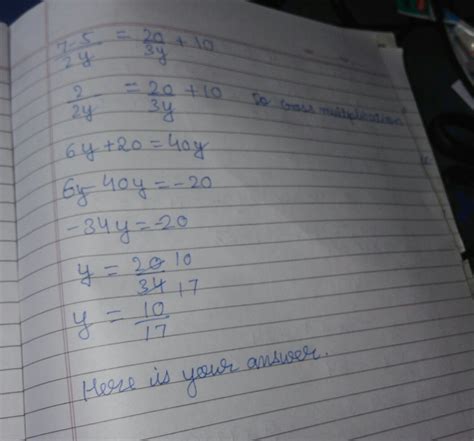 7-5/2y = 20/3y + 10
2/2y = 20/3y + 10 Do cross multiplication
6y + 20 = 40y
6y - 40y = -20
-34y = -20
y = 20/34 10/17
y = 10/17
Here is your answer.